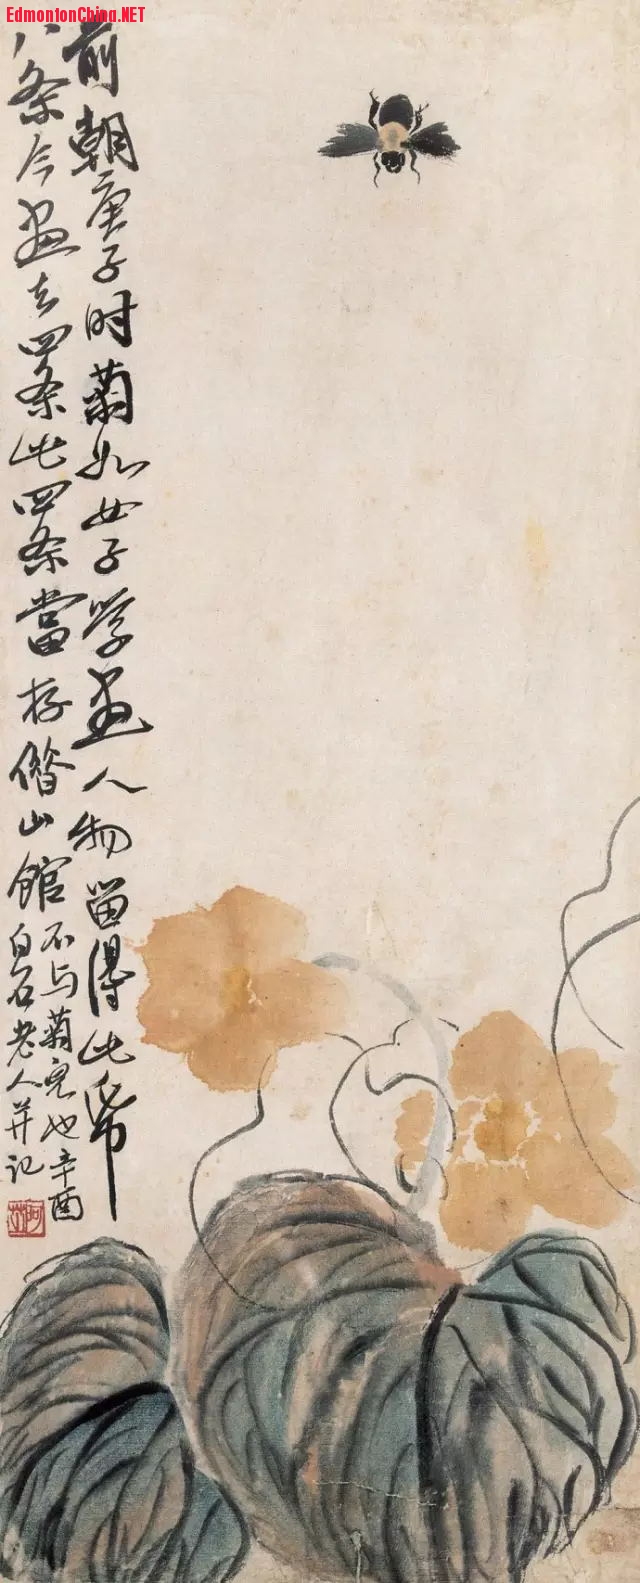 EdmontonChina.NET
前朝庚子时菊如女子学画人物留得此帋
八条今画去四条此四条當存借山館
不与菊儿也辛酉
白石老人并记
阿芝